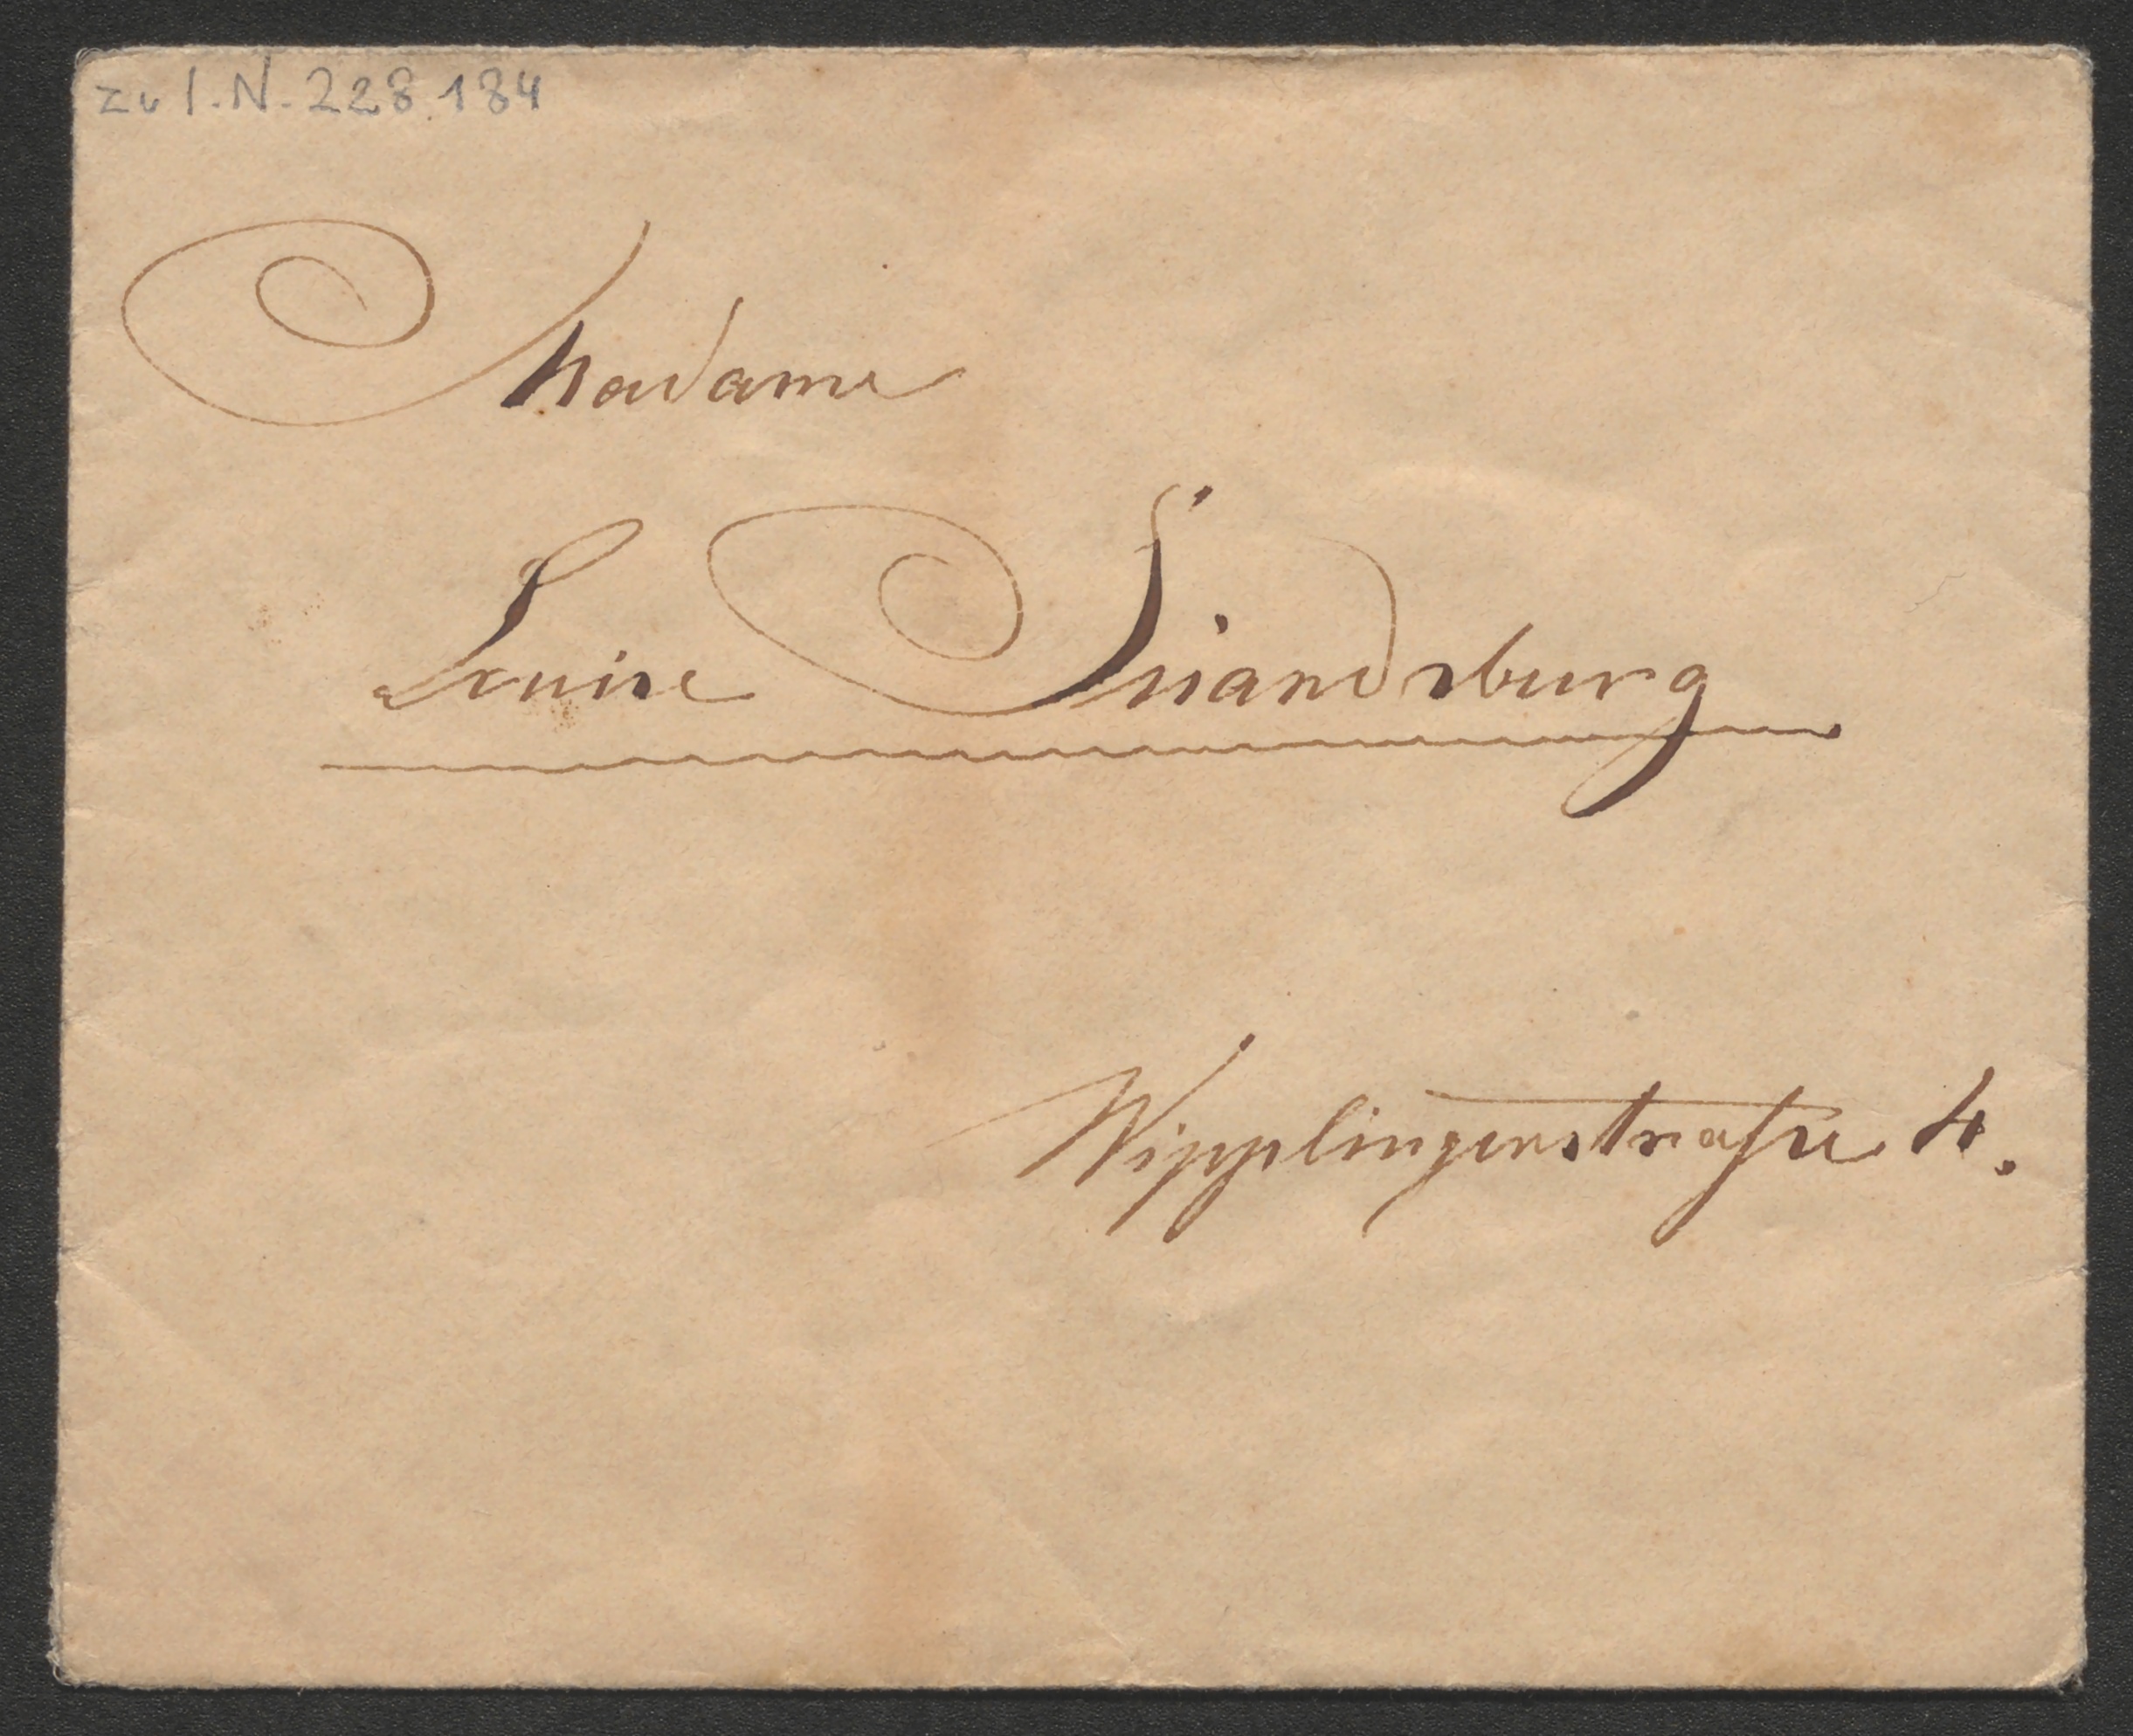 zu I.N. 228.184
Madame
Louise
Wipplingerstraße 4.